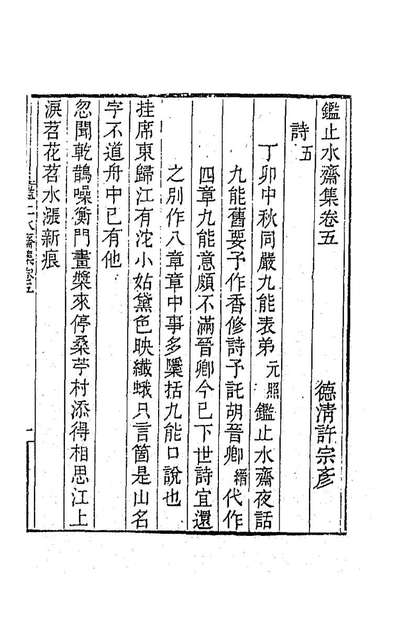 鑑止水齋集卷五
德清許宗彥
詩五
丁卯中秋同嚴九能表弟元照鑑止水齋夜話
九能舊要予作香修詩予託胡晉卿縉代作
四章九能意頗不滿晉卿今已下世詩宜還
之別作八章章中事多隱括九能口說也
挂席東歸江有沱小姑黛色映纖蛾只言箇是山名
字不道舟中已有他
忽聞乾鵲噪衡門畫槳來停桑苧村添得相思江上
淚苕花苕水漲新痕